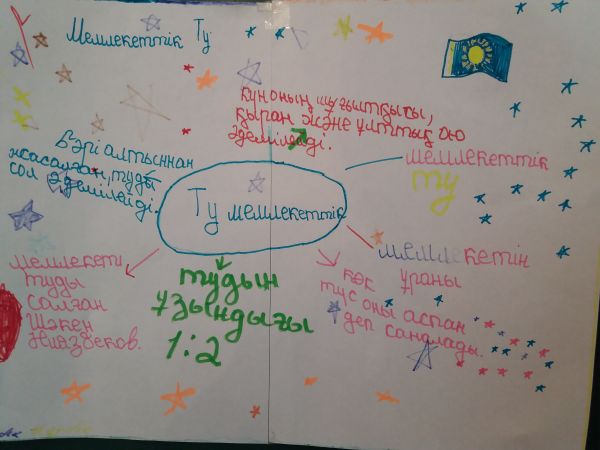 Мемлекеттік Ту
Күноның шуғыштқысы,
қыран және ұлттық ою
әдемілейді.
Бәрі алтыннан
жасалған, туды
сол әдемілейді.
мемлекеттік
ту
Ту мемлекеттік
мемлекетін
ұраны
мемлекеті
туды
салған
Шәкен
Ниязбеков.
тудын
ұзындығы
1:2
көк
түс оны аспан
деп саналады.